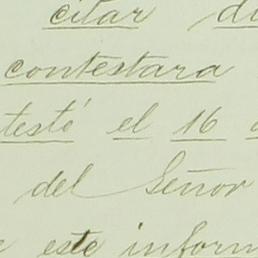 citar di
contestara
testé el 16
del Señor
este inform